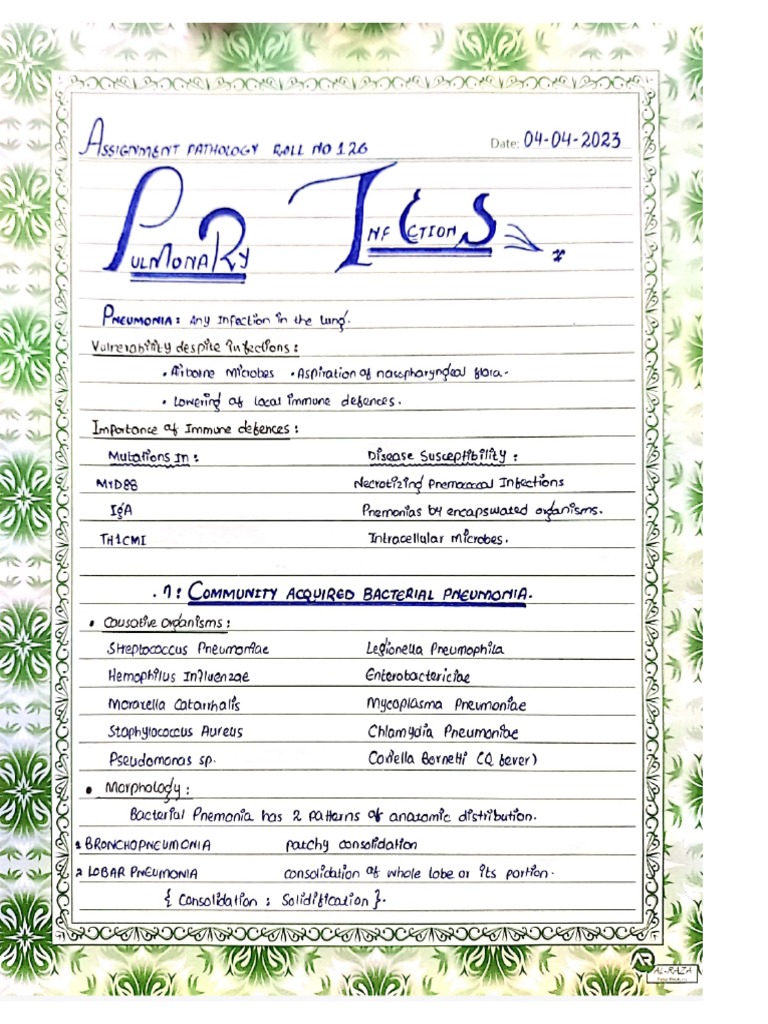 ASSIGNMENT PATHOLOGY ROLL NO 126 Date: 04-04-2023
PULMONARY INFECTIONS
PNEUMONIA: Any Infection in the lung.
Vulnerability despite infections:
• Airborne Microbes • Aspiration of nasopharyngeal flora.
• Lowering of local immune defences.
Importance of Immune defences:
Mutations In: Disease Susceptibility:
MYD88 Necrotizing Pnemococcal Infections
IgA Pnemonias by encapsulated organisms.
TH1CMI Intracellular microbes.
.1: COMMUNITY ACQUIRED BACTERIAL PNEUMONIA.
• Causative organisms:
Streptococcus Pneumoniae Legionella Pneumophila
Hemophilus Influenzae Enterobactericiae
Moraxella Catarrhalis Mycoplasma Pneumoniae
Staphylococcus Aureus Chlamydia Pneumoniae
Pseudomonas sp. Coxiella Bornetti (Q fever)
• Morphology:
Bacterial Pnemonia has 2 patterns of anatomic distribution.
1 BRONCHOPNEUMONIA patchy consolidation
2 LOBAR PNEUMONIA consolidation of whole lobe or its portion.
{ Consolidation : Solidification }.
AL-RAZA